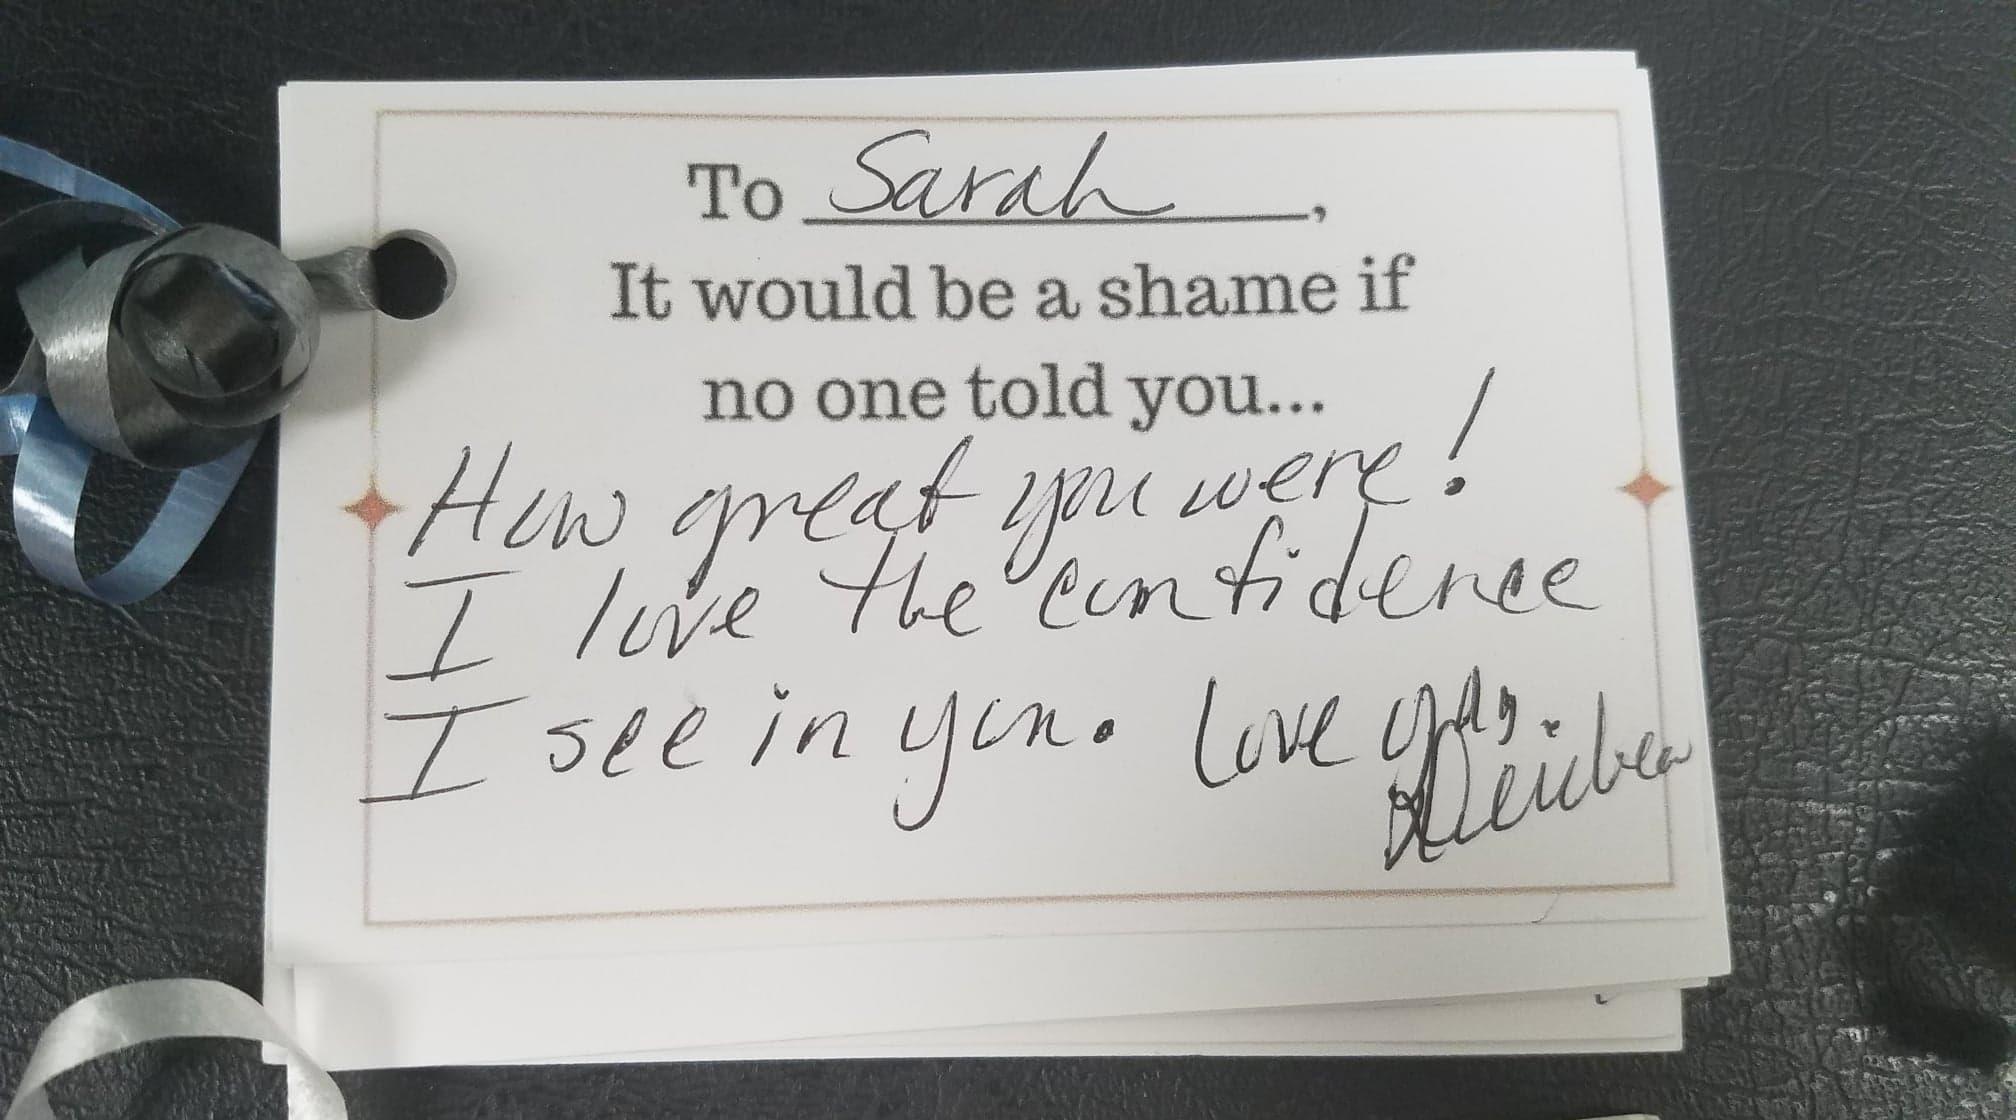 To Sarah,
It would be a shame if
no one told you...
How great you were!
I love the confidence
I see in you. Love